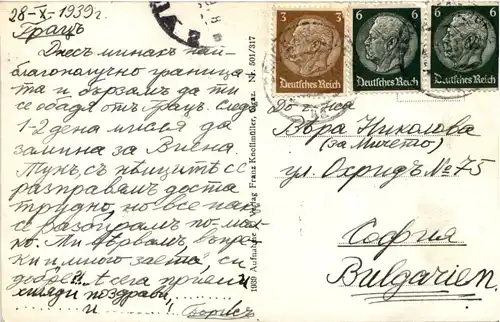 28-X-1939г.
Грацъ
Днесъ минахъ най-
благополучно граница
та и бързамъ да ти
се обадя отъ Грацъ. Следъ
1-2 дена мисля да
замина за Виена.
Тукъ, съ нѣмцитѣ се
разправямъ доста
трудно, но все пак
се разбирам по мал-
ко. Ми
ки и много заета, си
добре?! А сега приеми
хиляди поздрави,
и Борисъ
1939 Aufnahme Verlag Franz Knollmüller, Graz. Nr. 501/317
3
Deutsches Reich
6
Deutsches Reich
6
Deutsches Reich
До г-ца
Вѣра Николова
(за Мичето)
ул. Охридъ № 75
София
Bulgarien